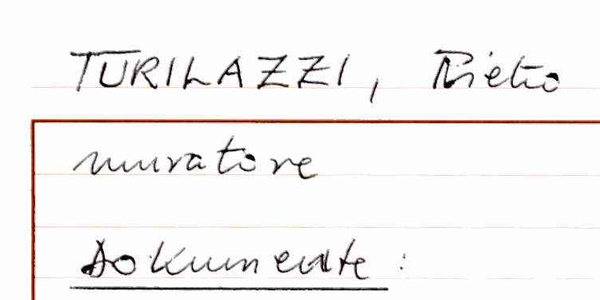 TURILAZZI, Pietro
muratore
Dokumente: